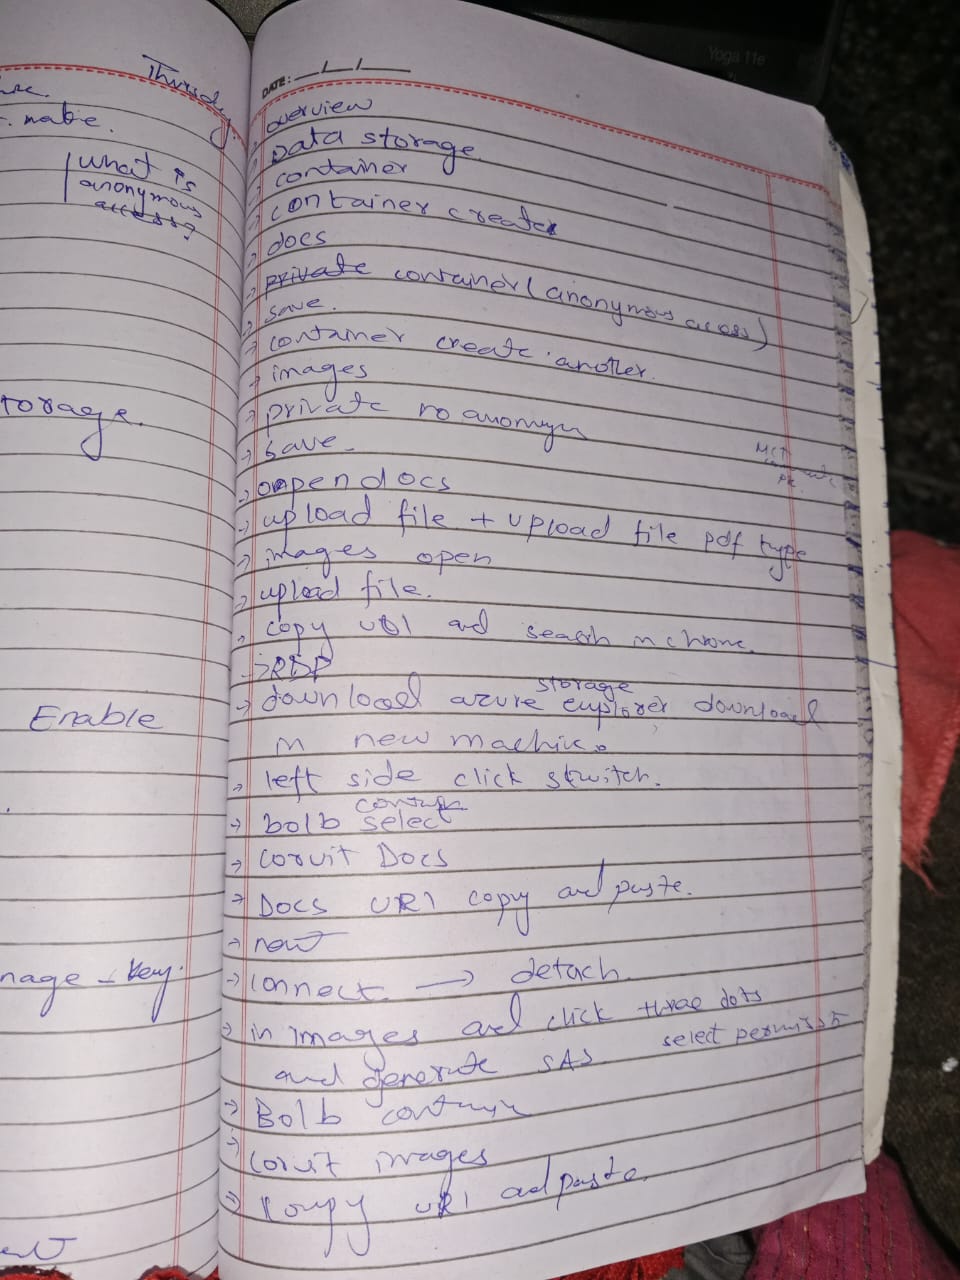 Thursday
nabe.
what is
anonymous
access?
torage.
Enable
nage - key.
Yoga 11e
DATE: __/__/____
→ overview
→ Data storage
→ container
→ container create
→ docs
→ private container (anonymous access)
→ save.
→ container create another.
→ images
→ private no anomyn
→ save -
→ open docs
→ upload file + upload file pdf type
→ images open
→ upload file.
→ copy URl and search in chrome.
→ RDP
storage
→ download azure explorer download
in new machine.
→ left side click switch.
→ bolb select
→ Docs
→ Docs URl copy and paste.
→ next
→ connect. → detach.
→ in images and click three dots
and generate SAS select permiss
→ Bolb
→ images
→ URl and paste.